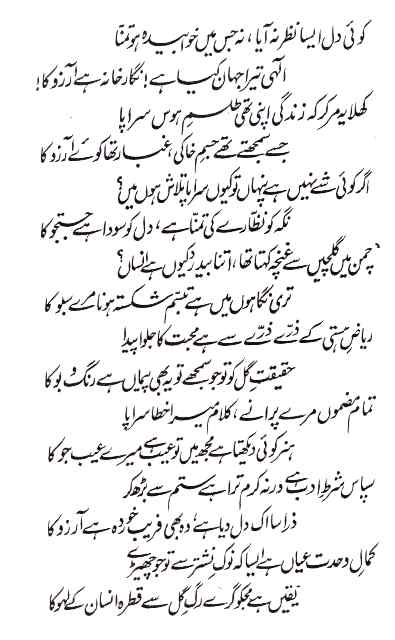 کوئی دل ایسا نظر نہ آیا، نہ جس میں خوابیدہ ہو تمنّا
الٰہی تیرا جہان کیا ہے! نگارخانہ ہے آرزو کا!
کھلا یہ مر کر کہ زندگی اپنی تھی طلسمِ ہوس سراپا
جسے سمجھتے تھے جسمِ خاکی، غبار تھا کوئے آرزو کا
اگر کوئی شے نہیں ہے پنہاں تو کیوں سراپا تلاش ہوں میں؟
نگہ کو نظّارے کی تمنّا ہے، دل کو سودا ہے جستجو کا
چمن میں گلچیں سے غنچہ کہتا تھا، اتنا بیدرد کیوں ہے انساں؟
تری نگاہوں میں ہے تبسّم شکستہ ہونا مرے سبو کا
ریاضِ ہستی کے ذرّے ذرّے سے ہے محبت کا جلوا پیدا
حقیقتِ گل کو تو جو سمجھے تو یہ بھی پیماں ہے رنگ و بو کا
تمام مضموں مرے پرانے، کلام میرا خطا سراپا
ہنر کوئی دیکھتا ہے مجھ میں تو عیب ہے میرے عیب جو کا
سپاس شرطِ ادب ہے ورنہ کرم ترا ہے ستم سے بڑھ کر
ذرا سا اک دل دیا ہے، وہ بھی فریب خوردہ ہے آرزو کا
کمالِ وحدت عیاں ہے ایسا کہ نوکِ نشتر سے تو جو چھیڑے
یقیں ہے مجکو گرے رگِ گل سے قطرہ انسان کے لہو کا